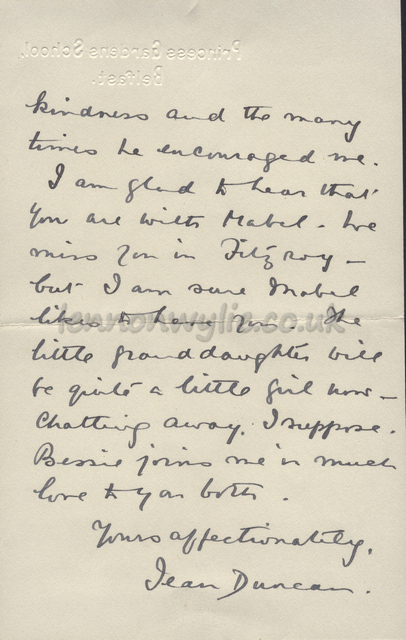 Princess Gardens School,
Belfast.
kindness and the many
times he encouraged me.
I am glad to hear that
you are with Mabel. We
miss you in Fitzroy –
but I am sure Mabel
likes to have you. The
lennonwylie.co.uk
little granddaughter will
be quite a little girl now –
chatting away, I suppose.
Bessie joins me in much
love to you both.
Yours affectionately,
Jean Duncan.